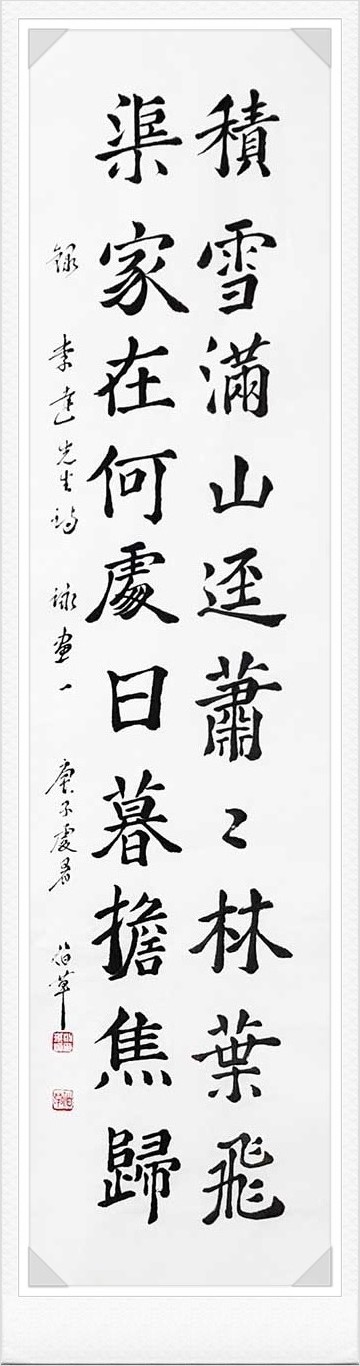 積雪滿山逕蕭〻林葉飛
渠家在何處日暮擔焦歸
録 李達先生詩 詠畫一 庚子處暑